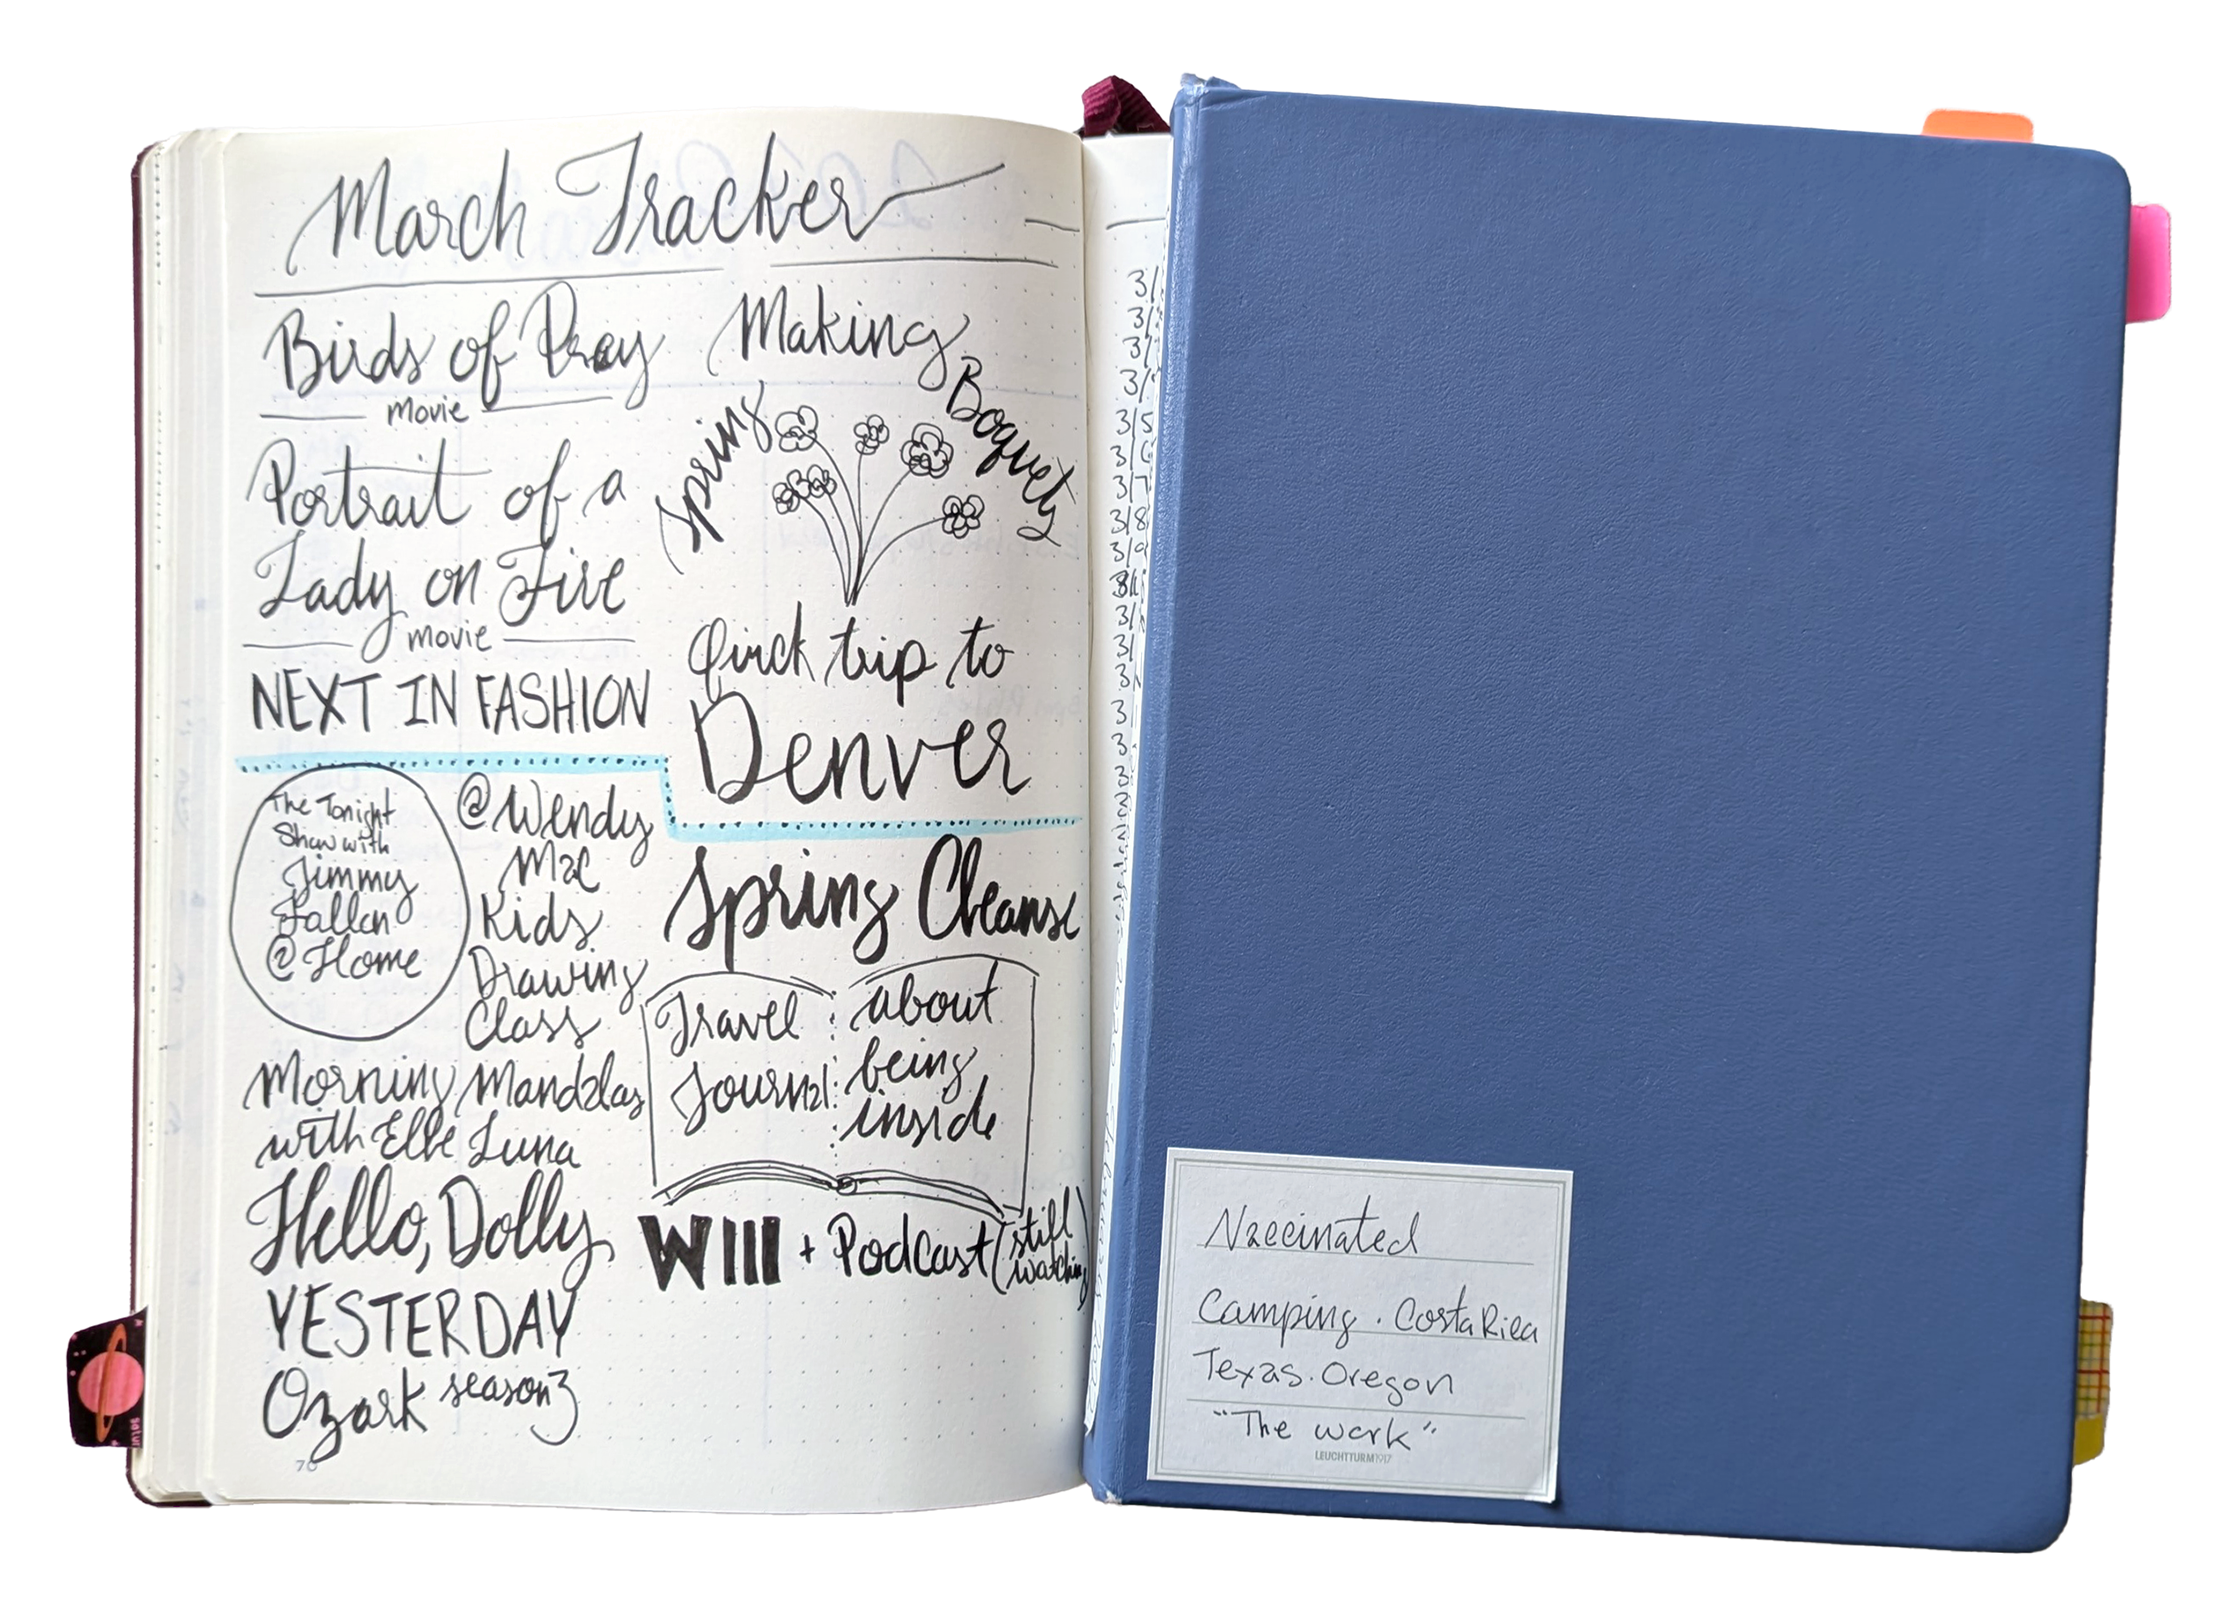 March Tracker
Birds of Prey
movie
Portrait of a
Lady on Fire
movie
NEXT IN FASHION
Making
Spring
Boquets
Quick trip to
Denver
The Tonight
Show with
Jimmy
Fallon
@ Home
@ Wendy
Mac
Kids
Drawing
Class
Morning Mandalas
with Elle Luna
Hello, Dolly
YESTERDAY
Ozark season 3
Spring Cleanse
Travel
Journal
about
being
inside
WIll + Podcast (still
watching)
70
3/
3/
3/
3/
3/5
3/6
3/7
3/8
3/9
3/
3/
3/
3
3
3
Vaccinated
Camping . Costa Rica
Texas . Oregon
"The work"
LEUCHTTURM1917